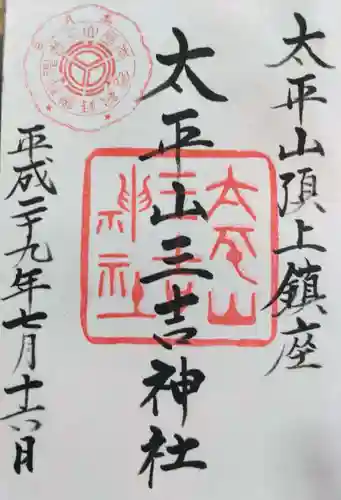 太平山頂上鎮座
太平山三吉神社
平成二十九年七月十六日
太平山
三吉
神社